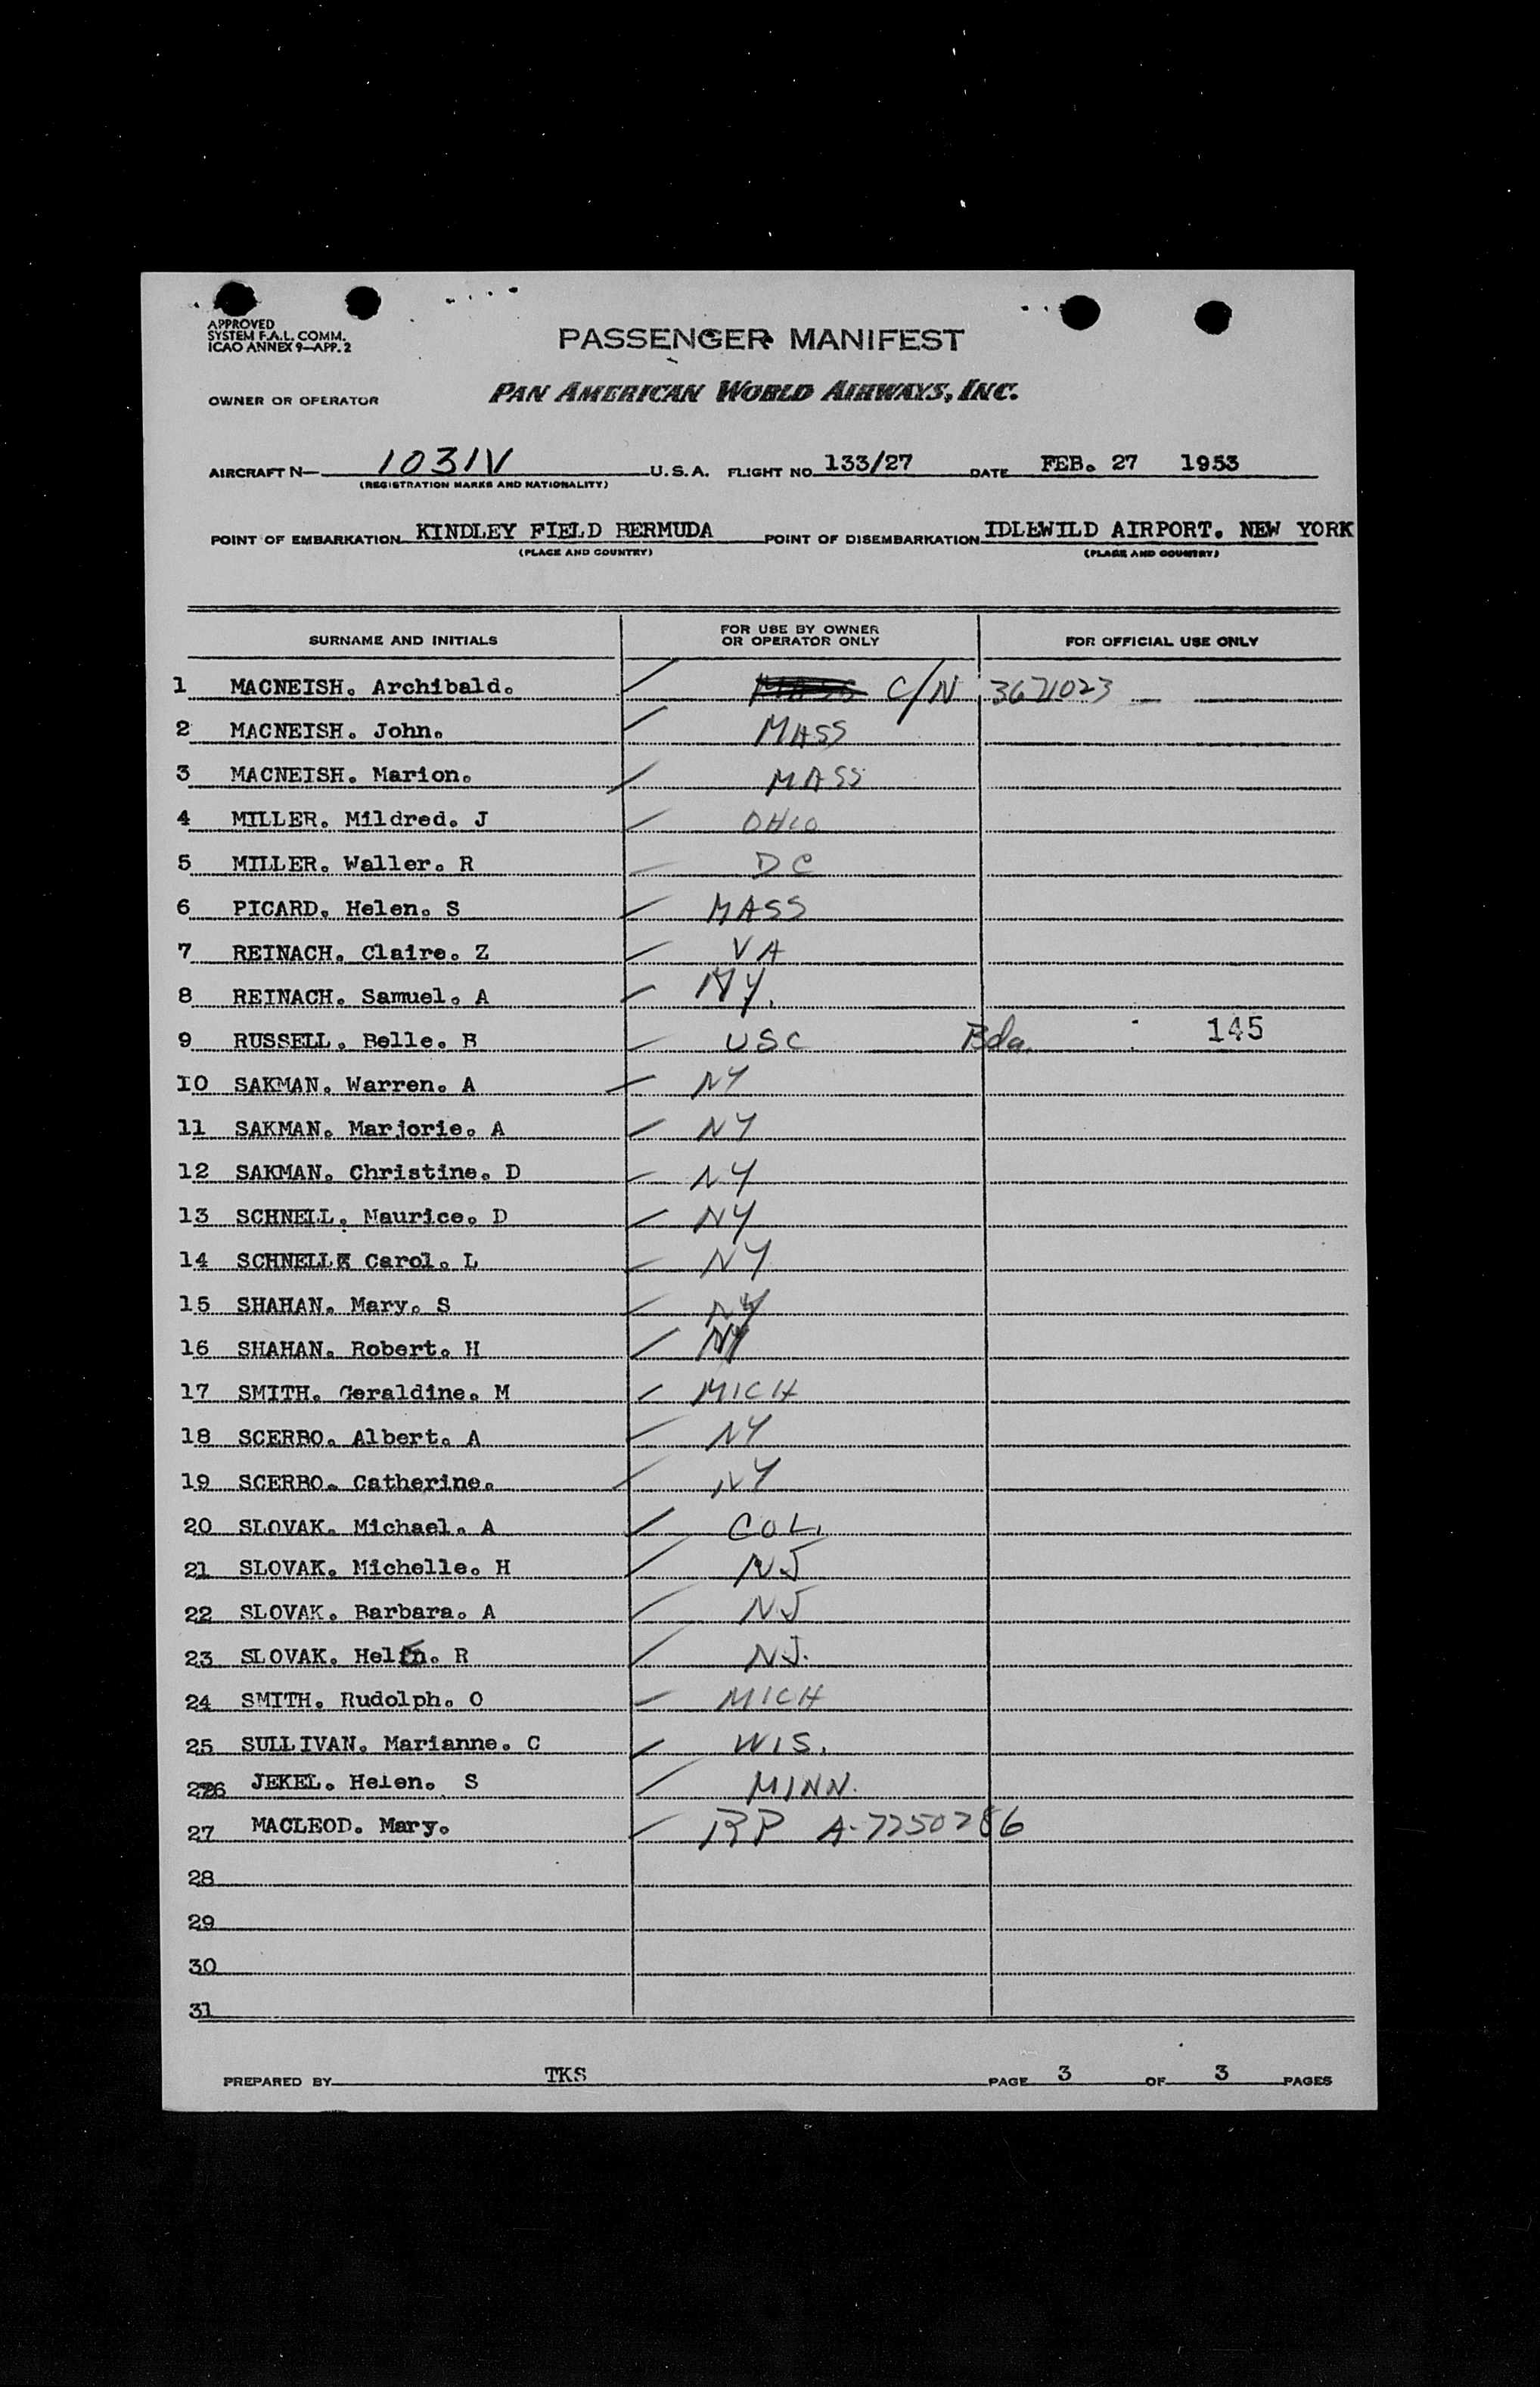 APPROVED
SYSTEM F.A.L. COMM.
ICAO ANNEX 9—APP. 2
PASSENGER MANIFEST
OWNER OR OPERATOR PAN AMERICAN WORLD AIRWAYS, INC.
AIRCRAFT N— 1031V U.S.A. FLIGHT NO. 133/27 DATE FEB. 27 1953
(REGISTRATION MARKS AND NATIONALITY)
POINT OF EMBARKATION KINDLEY FIELD BERMUDA POINT OF DISEMBARKATION IDLEWILD AIRPORT. NEW YORK
(PLACE AND COUNTRY) (PLACE AND COUNTRY)
SURNAME AND INITIALS FOR USE BY OWNER OR OPERATOR ONLY FOR OFFICIAL USE ONLY
1 MACNEISH. Archibald. C/N 3671023
2 MACNEISH. John. MASS
3 MACNEISH. Marion. MASS
4 MILLER. Mildred. J OHIO
5 MILLER. Waller. R DC
6 PICARD. Helen. S MASS
7 REINACH. Claire. Z VA
8 REINACH. Samuel. A NY.
9 RUSSELL. Belle. B USC Bda. 145
10 SAKMAN. Warren. A NY
11 SAKMAN. Marjorie. A NY
12 SAKMAN. Christine. D NY
13 SCHNELL. Maurice. D NY
14 SCHNELL Carol. L NY
15 SHAHAN. Mary. S NY
16 SHAHAN. Robert. H NY
17 SMITH. Geraldine. M MICH
18 SCERBO. Albert. A NY
19 SCERBO. Catherine. NY
20 SLOVAK. Michael. A COL.
21 SLOVAK. Michelle. H NJ
22 SLOVAK. Barbara. A NJ
23 SLOVAK. Helen. R NJ.
24 SMITH. Rudolph. O MICH
25 SULLIVAN. Marianne. C WIS.
26 JEKEL. Helen. S MINN.
27 MACLEOD. Mary. RP A-7250286
28
29
30
31
PREPARED BY TKS PAGE 3 OF 3 PAGES